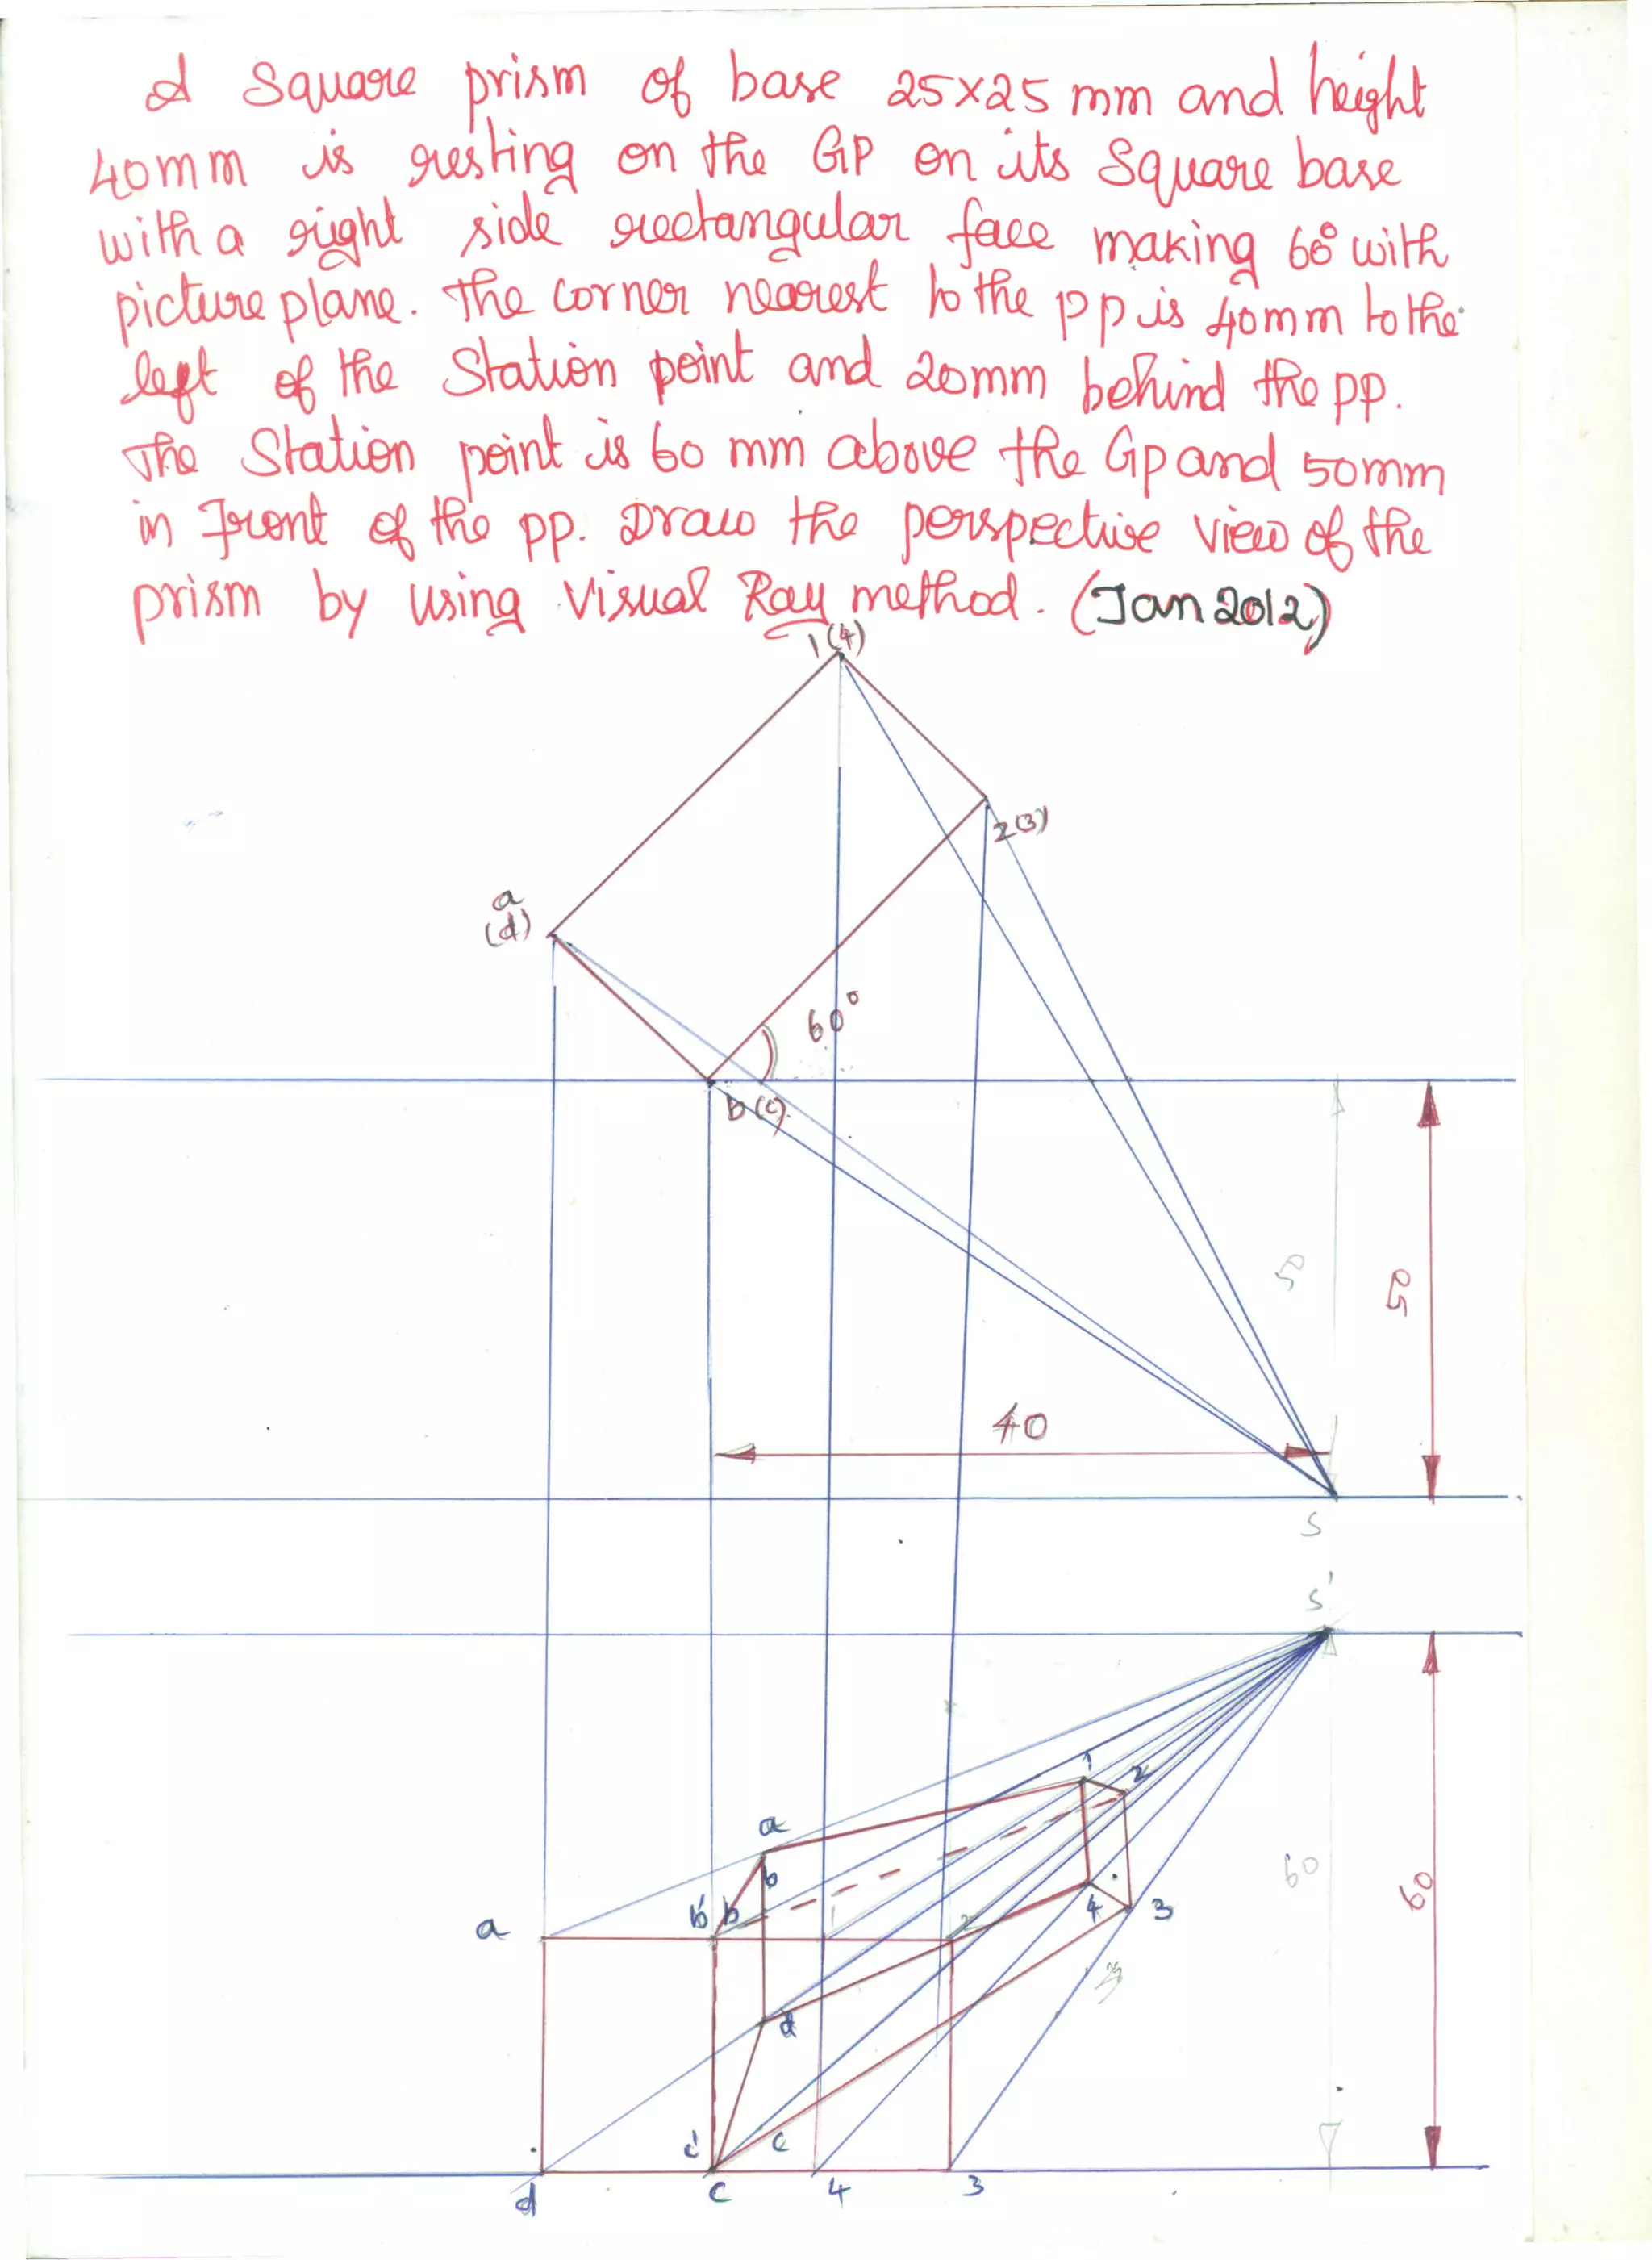 A Square prism of base 25x25 mm and height
40mm is resting on the GP on its Square base
with a right side rectangular face making 60° with
picture plane. The corner nearest to the PP is 40mm to the
left of the Station point and 20mm behind the PP.
The Station point is 60 mm above the GP and 50mm
in Front of the PP. Draw the perspective view of the
prism by using Visual Ray method. (Jan 2012)
1(4)
2(3)
a
(d)
60°
b(c)
50
25
40
S
S'
1
2
a
b
b' b
a
2
4 3
60
60
d
c' c
d c 4 3